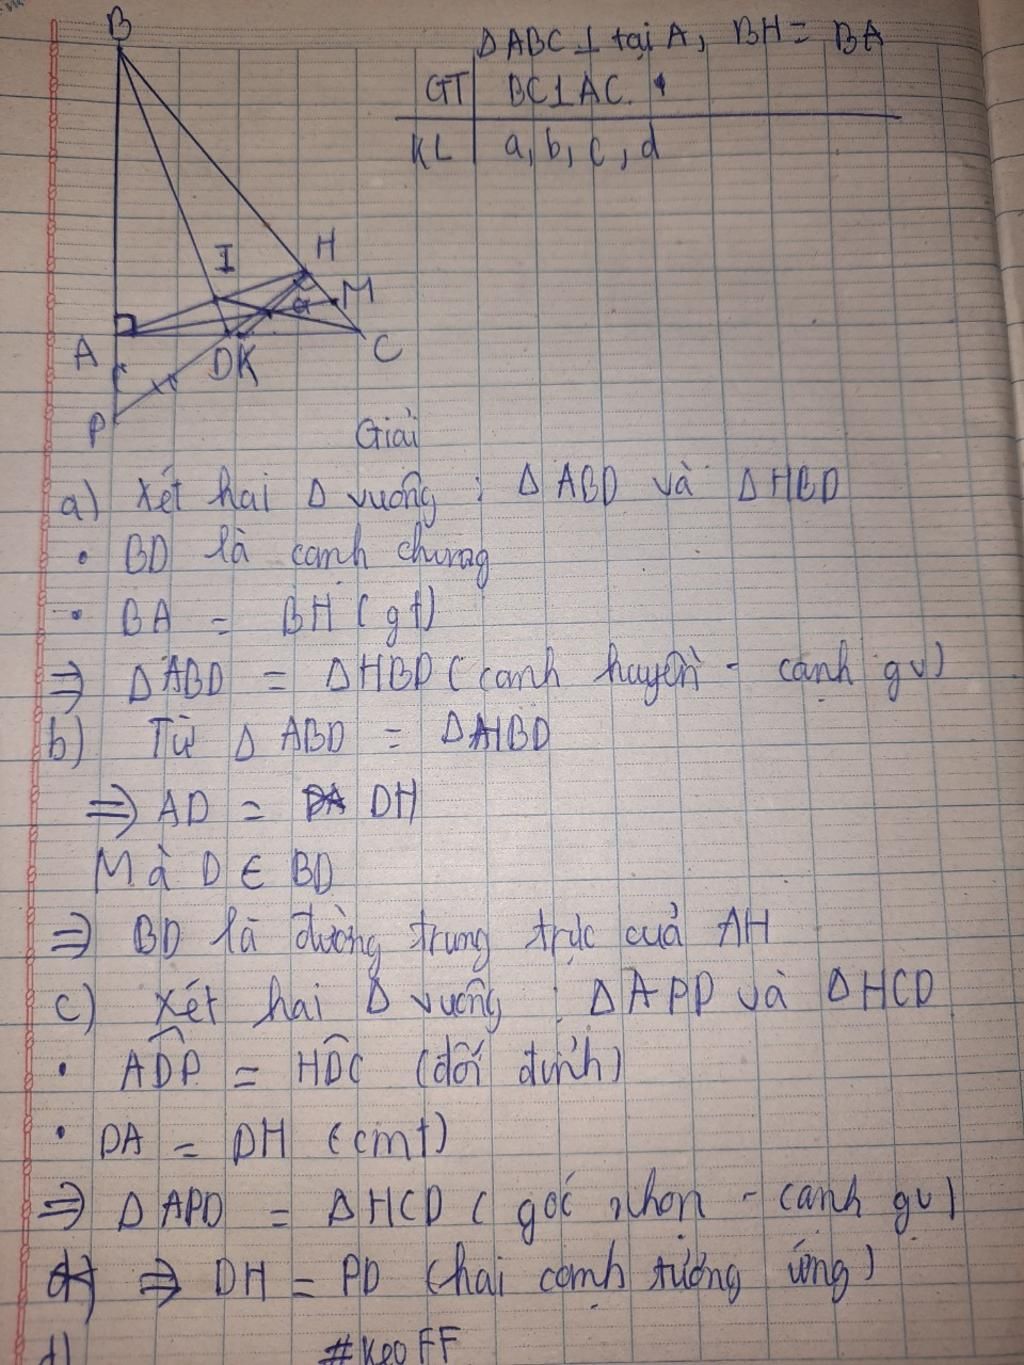 B
ΔABC ⊥ tại A, BH = BA
GT BC⊥AC.
KL a, b, c, d
I H
M
G
A DK C
P
Giải
a) Xét hai Δ vuông : Δ ABD và Δ HBD
• BD là cạnh chung
• BA = BH (gt)
⇒ Δ ABD = Δ HBD (cạnh huyền - cạnh gv)
b) Từ Δ ABD = ΔHBD
⇒ AD = DH
Mà D ∈ BD
⇒ BD là đường trung trực của AH
c) Xét hai Δ vuông : Δ APD và Δ HCD
• ADP = HDC (đối đỉnh)
• DA = DH (cmt)
⇒ Δ APD = Δ HCD ( góc nhọn - cạnh gv)
⇒ DH = PD (hai cạnh tương ứng)
d) #KeoFF